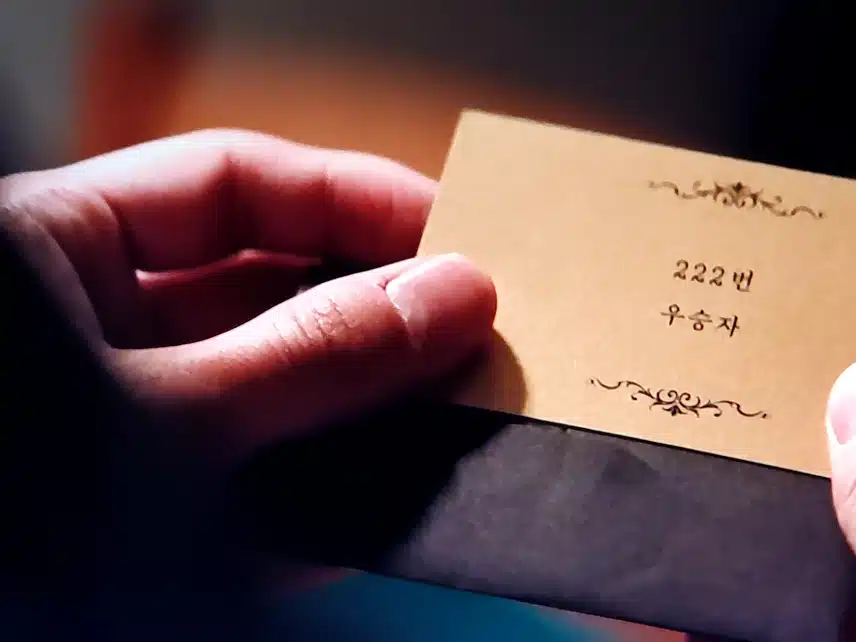 222번
우승자